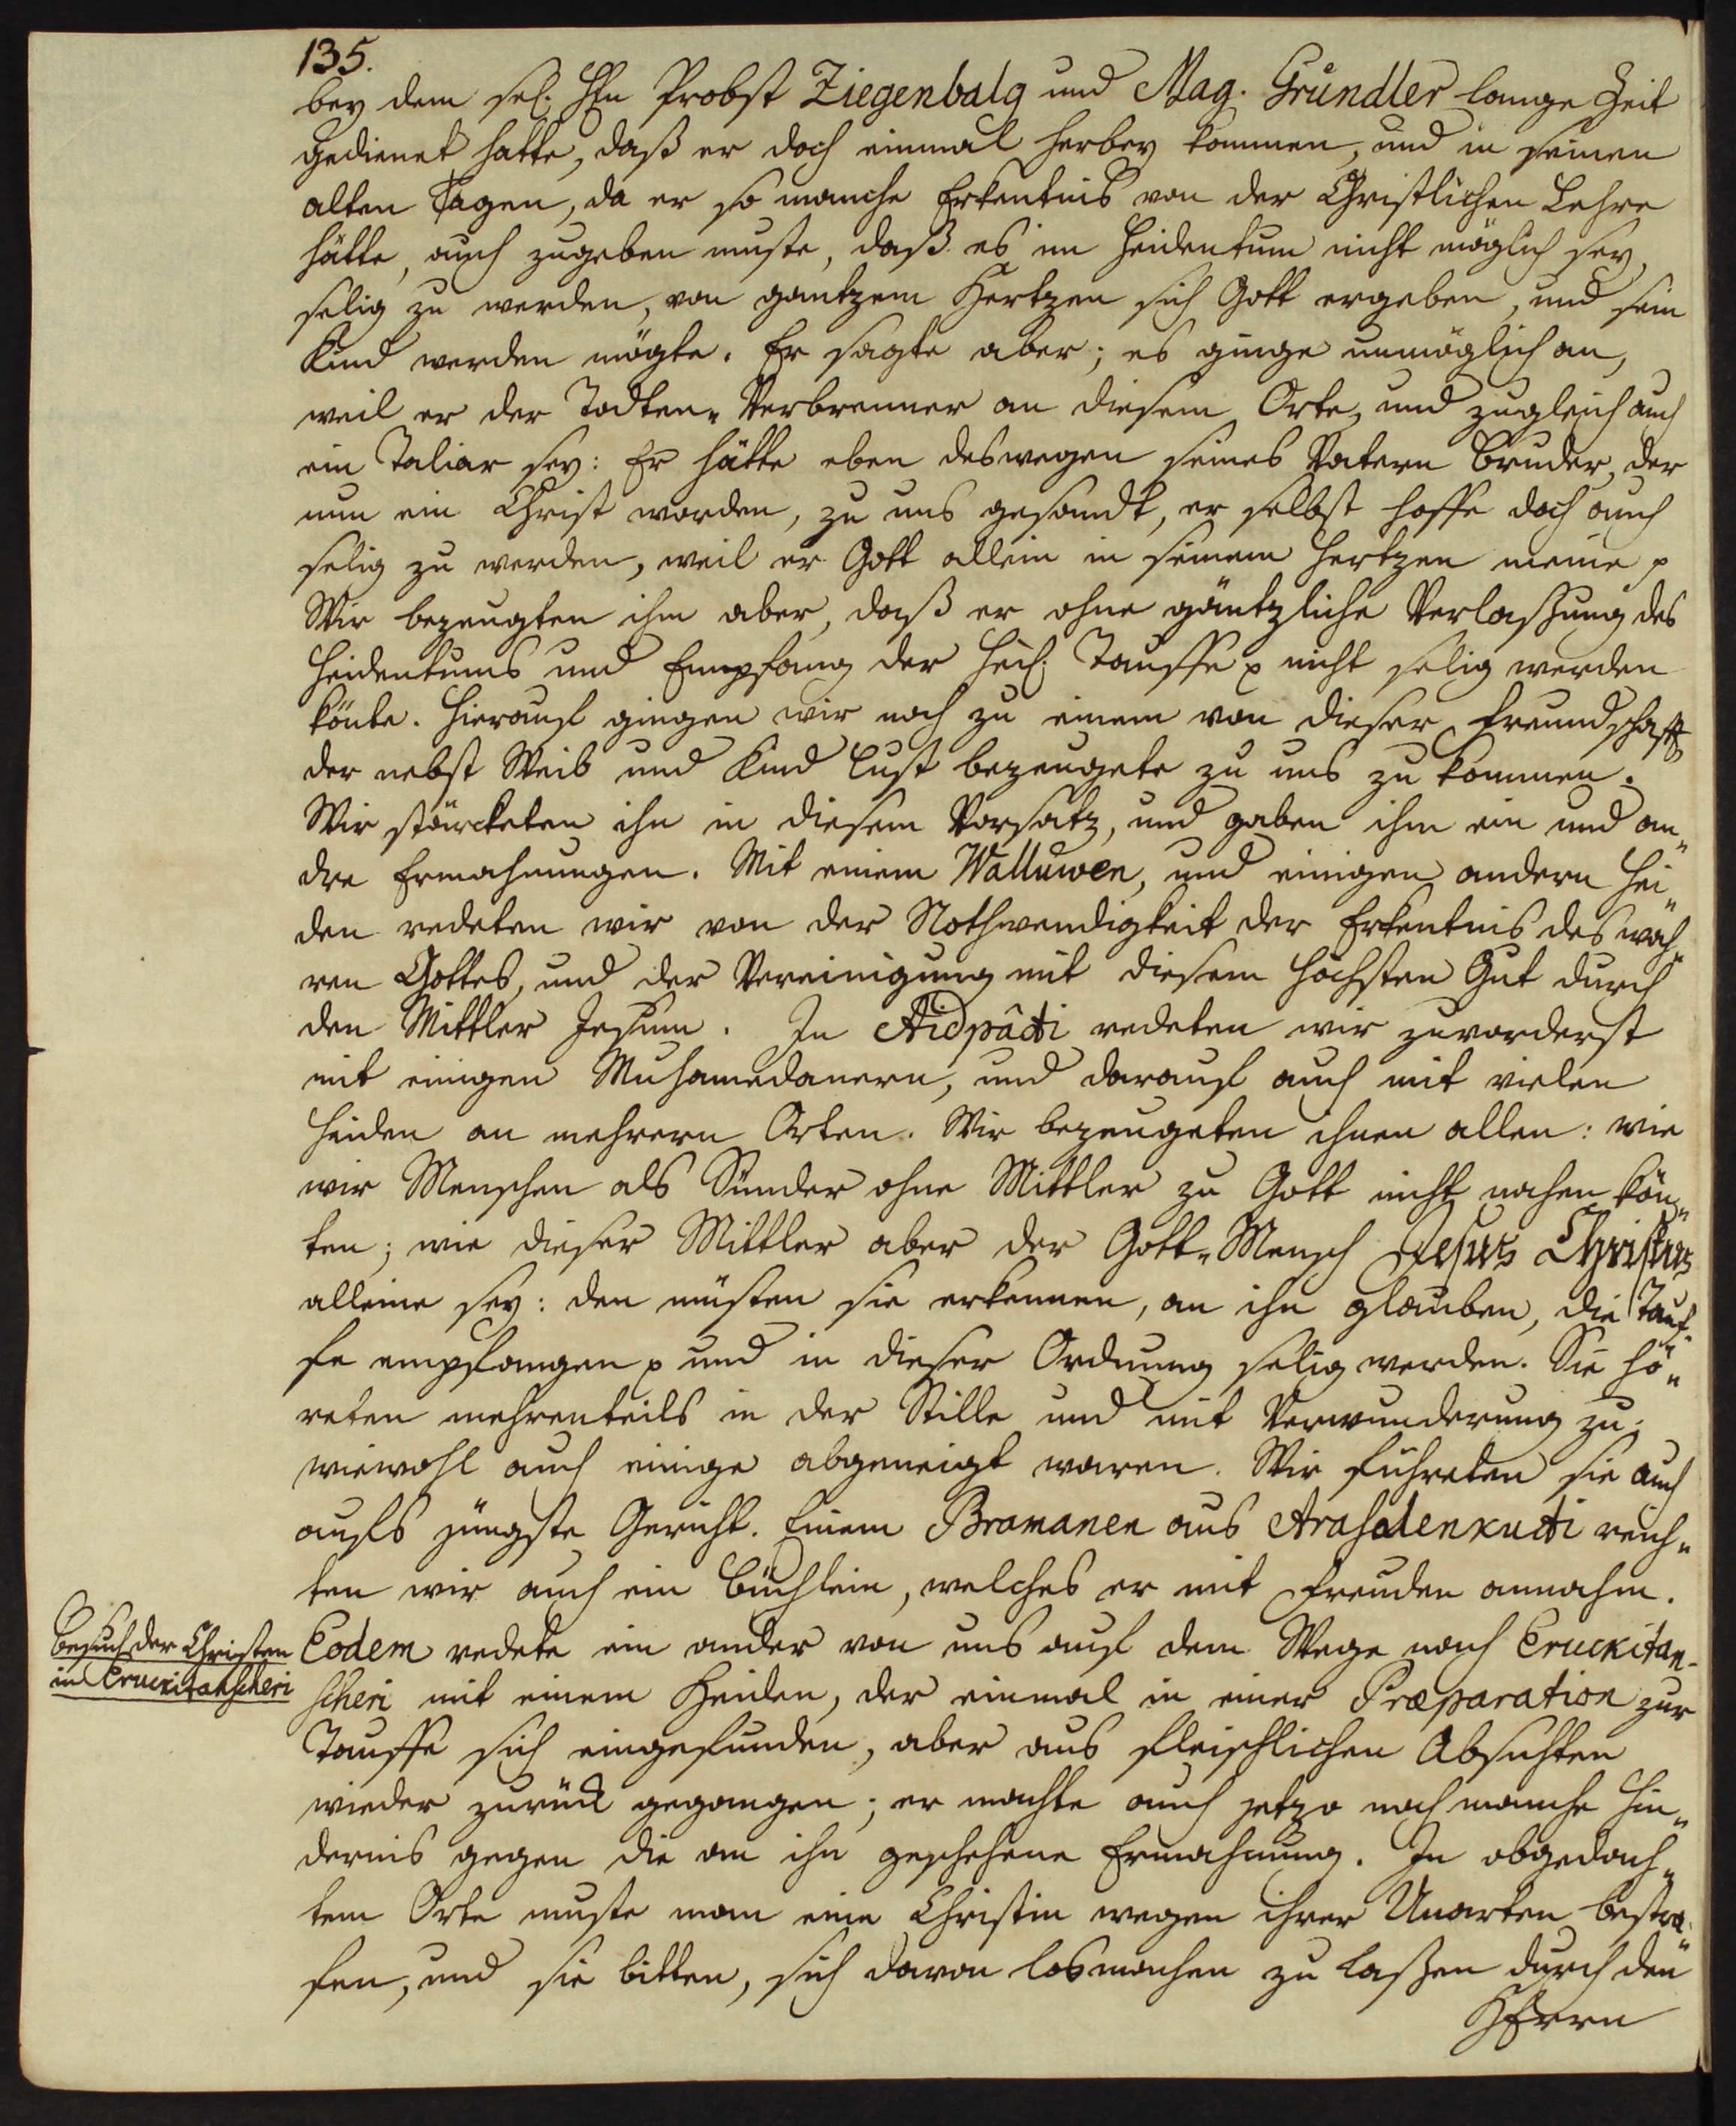 135.
bey dem sel. HEn Probst Ziegenbalg und Mag. Gründler lange Zeit
gedienet hatte, daß er doch einmal herbey kommen, und in seinen
alten Tagen, da er so manche Erkentnis von der Christlichen Lehre
hätte, auch zugeben muste, daß es im Heidentum nicht möglich sey,
selig zu werden, von gantzem Hertzen sich Gott ergeben, und sein
Kind werden mögte. Er sagte aber; es ginge unmöglich an,
weil er der Todten-Verbrenner an diesem Orte, und zugleich auch
ein Taliar sey: Er hätte eben deswegen seines Vatern Bruder, der
nun ein Christ worden, zu uns gesandt, er selbst hoffe doch auch
selig zu werden, weil er Gott allein in seinem Hertzen meine p
Wir bezeugten ihm aber, daß er ohne gäntzliche Verlaßung des
Heidentums und Empfang der Heil. Tauffe p nicht selig werden
könte. Hierauf gingen wir noch zu einem von dieser Freundschafft
der nebst Weib und Kind Lust bezeugete zu uns zu kommen.
Wir stärcketen ihn in diesem Vorsatz, und gaben ihm ein und an-
dre Ermahnungen. Mit einem Walluwen, und einigen andern Hei-
den redeten wir von der Nothwendigkeit der Erkentnis des wah-
ren Gottes, und der Vereinigung mit diesem höchsten Gut durch
den Mittler Jesum. In Aidpâdi redeten wir zuvorderst
mit einigen Muhamedanern, und darauf auch mit vielen
Heiden an mehrern Orten. Wir bezeugeten ihnen allen: wie
wir Menschen als Sünder ohne Mittler zu Gott nicht nahen kön-
ten; wie dieser Mittler aber der Gott-Mensch Jesus Christus
alleine sey: den müsten sie erkennen, an ihn glauben, die Tauf-
fe empfangen p und in dieser Ordnung selig werden. Sie hö-
reten mehrenteils in der Stille und mit Verwunderung zu;
wiewohl auch einige abgeneigt waren. Wir führeten sie auch
aufs jüngste Gericht. Einem Bramanen aus Arasalenkudi reich-
ten wir auch ein Büchlein, welches er mit Freuden annahm.
Besuch der Christen
in Eruckitanscheri
Eodem redete ein ander von uns auf dem Wege nach Eruckitan-
scheri mit einem Heiden, der einmal in einer Præparation zur
Tauffe sich eingefunden, aber aus fleischlichen Absichten
wieder zurück gegangen; er machte auch jetzo noch manche Hin-
dernis gegen die an ihn geschehene Ermahnung. In obgedach-
tem Orte muste man eine Christin wegen ihrer Unarten bestra-
fen, und sie bitten, sich davon losmachen zu laßen durch den
HErrn